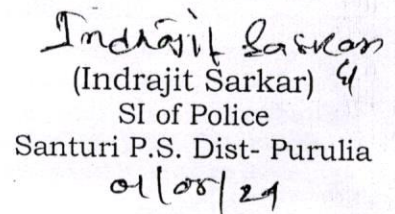 Indrajit Sarkar
(Indrajit Sarkar)
SI of Police
Santuri P.S. Dist- Purulia
01/05/24